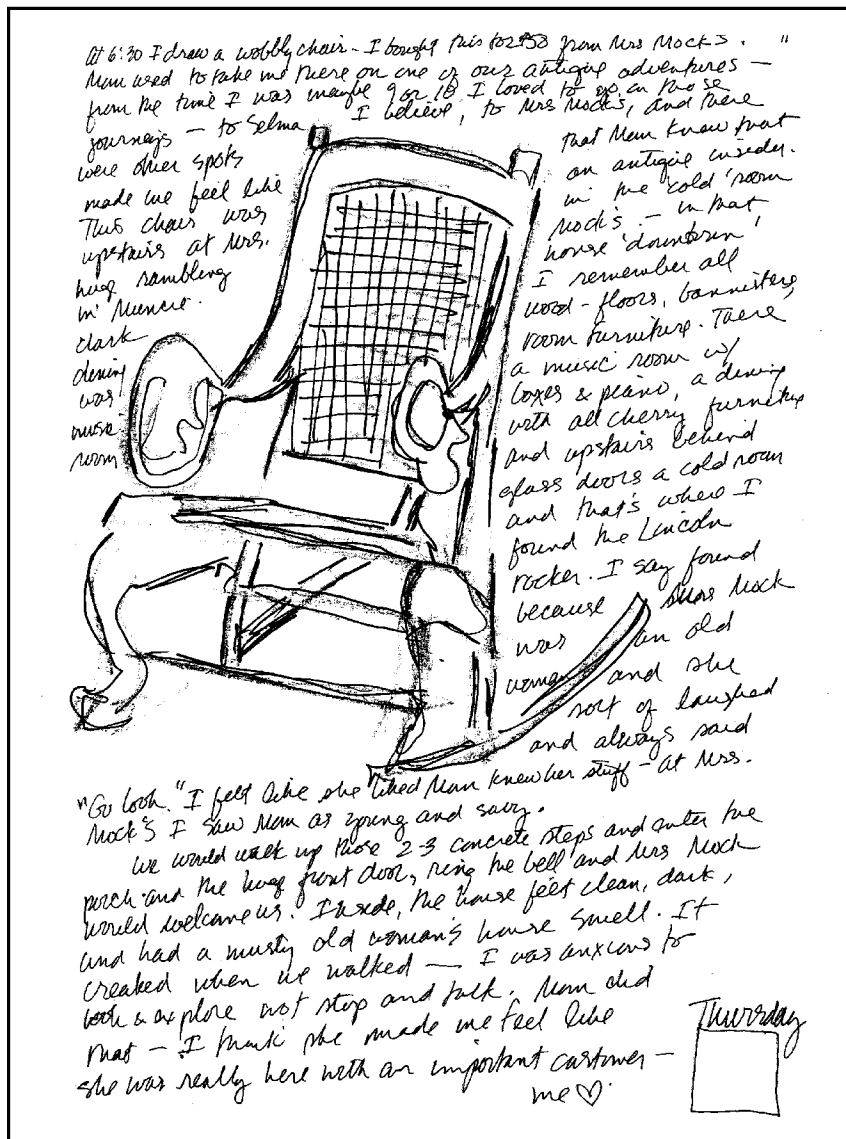 At 6:30 I draw a wobbly chair - I bought this for $50 from Mrs Mock's. "
Mom used to take me there on one of our antique adventures —
from the time I was maybe 9 or 10 I loved to go on those
journeys — to Selma I believe, to Mrs Mock's, and there
were other spots that Mom knew that
made me feel like an antique insider.
This chair was in the 'cold' room
upstairs at Mrs. Mock's — in that
huge rambling house 'downtown'
in Muncie. I remember all
dark wood - floors, bannisters,
dining room furniture. There
was a music room w/
music boxes & piano, a dining
room with all cherry furniture
and upstairs behind
glass doors a cold room
and that's where I
found the Lincoln
rocker. I say found
because Mrs Mock
was an old
woman and she
sort of laughed
and always said
"Go look." I felt like she liked Mom knew her stuff — at Mrs.
Mock's I saw Mom as young and savy.
We would walk up those 2-3 concrete steps and enter the
porch and the huge front door, ring the bell and Mrs Mock
would welcome us. Inside, the house felt clean, dark,
and had a musty old woman's house smell. It
creaked when we walked — I was anxious to
look & explore not stop and talk. Mom did
that — I think she made me feel like
she was really here with an important customer —
me ♡.
Thursday